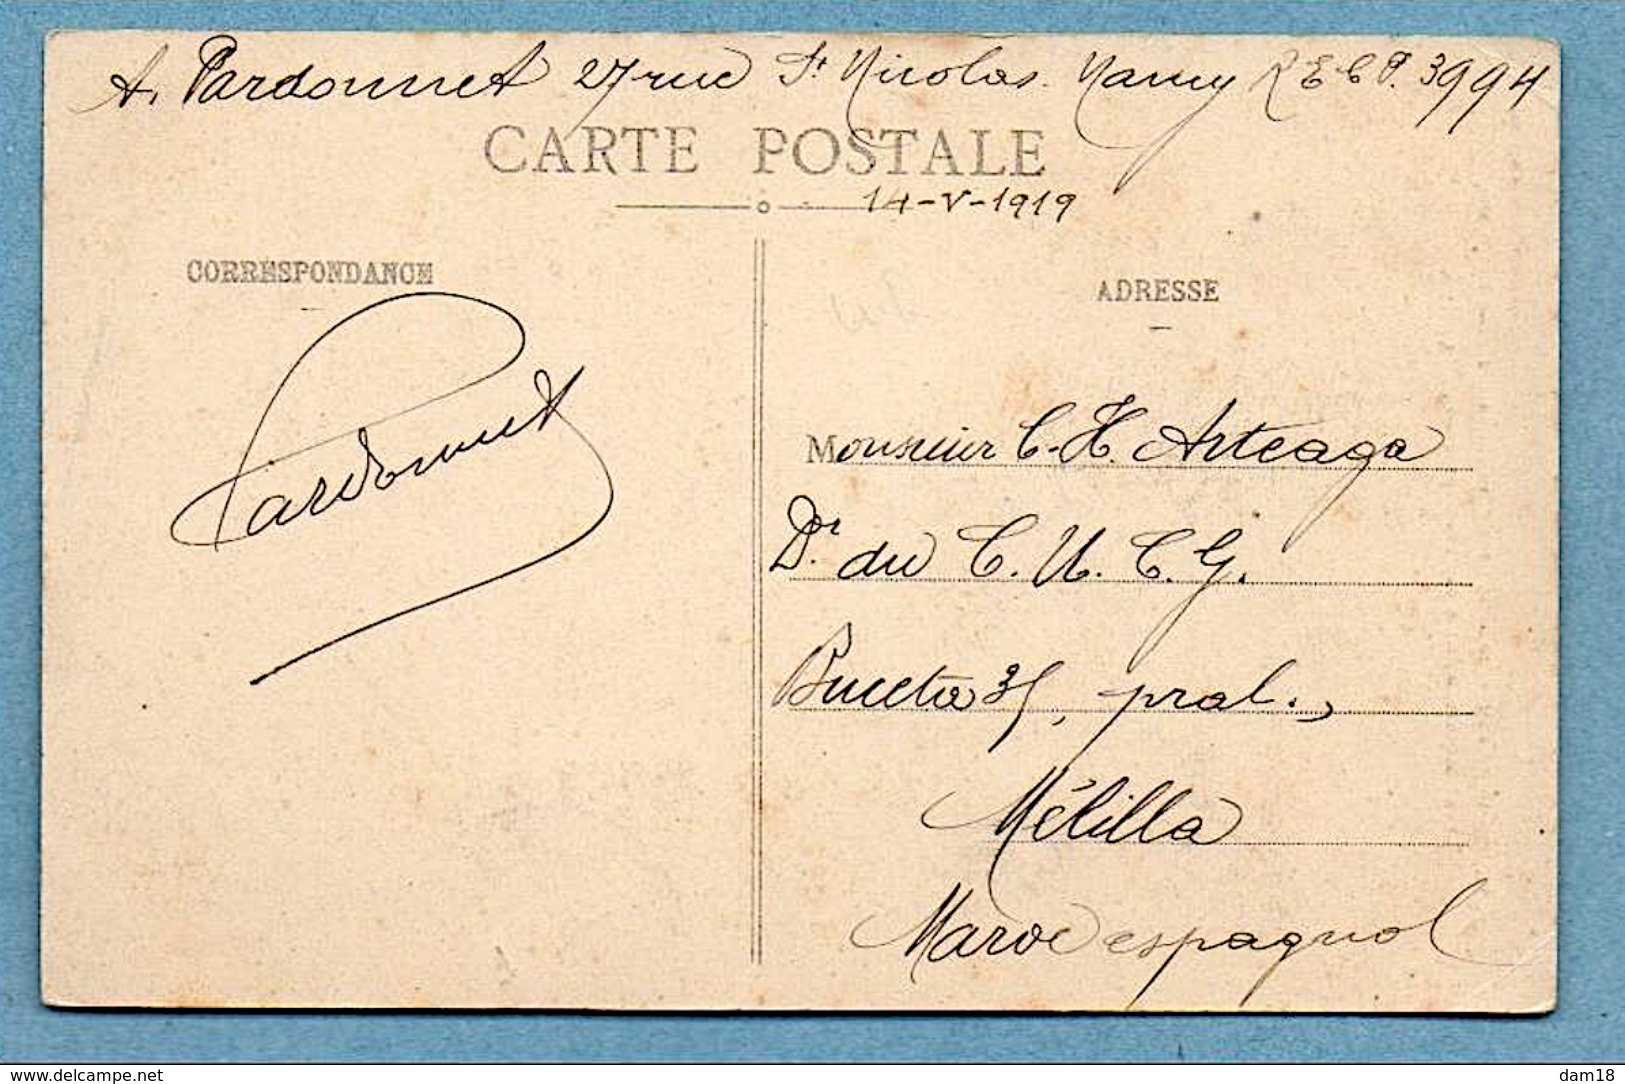 A. Pardonnet 27 rue St Nicolas. Nancy R E C P. 3994
CARTE POSTALE
14-V-1919
CORRESPONDANCE
ADRESSE
Pardonnet
Monsieur C. H. Arteaga
Dr. du C. U. C. G.
Buceta 35, pral.,
Mélilla
Maroc espagnol
www.delcampe.net
dam18